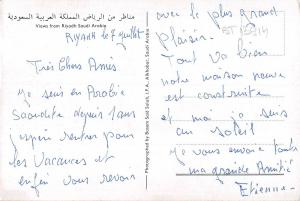 مناظر من الرياض المملكة العربية السعودية
Views from Riyadh Saudi Arabia
RIYADH le 7 juillet
Très Chers Amis.
Je suis en Arabie
Saoudite depuis 1 ans
j'espère rentrer pour
les Vacances et
enfin vous revoir
Photographed by Bassem Said Salah, I.P.A. Alkhobar, Saudi Arabia
avec le plus grand
plaisir.
Tout va bien
notre maison neuve
est construite
et ma
au soleil
Je vous envoie toute
ma grande Amitié
Etienne